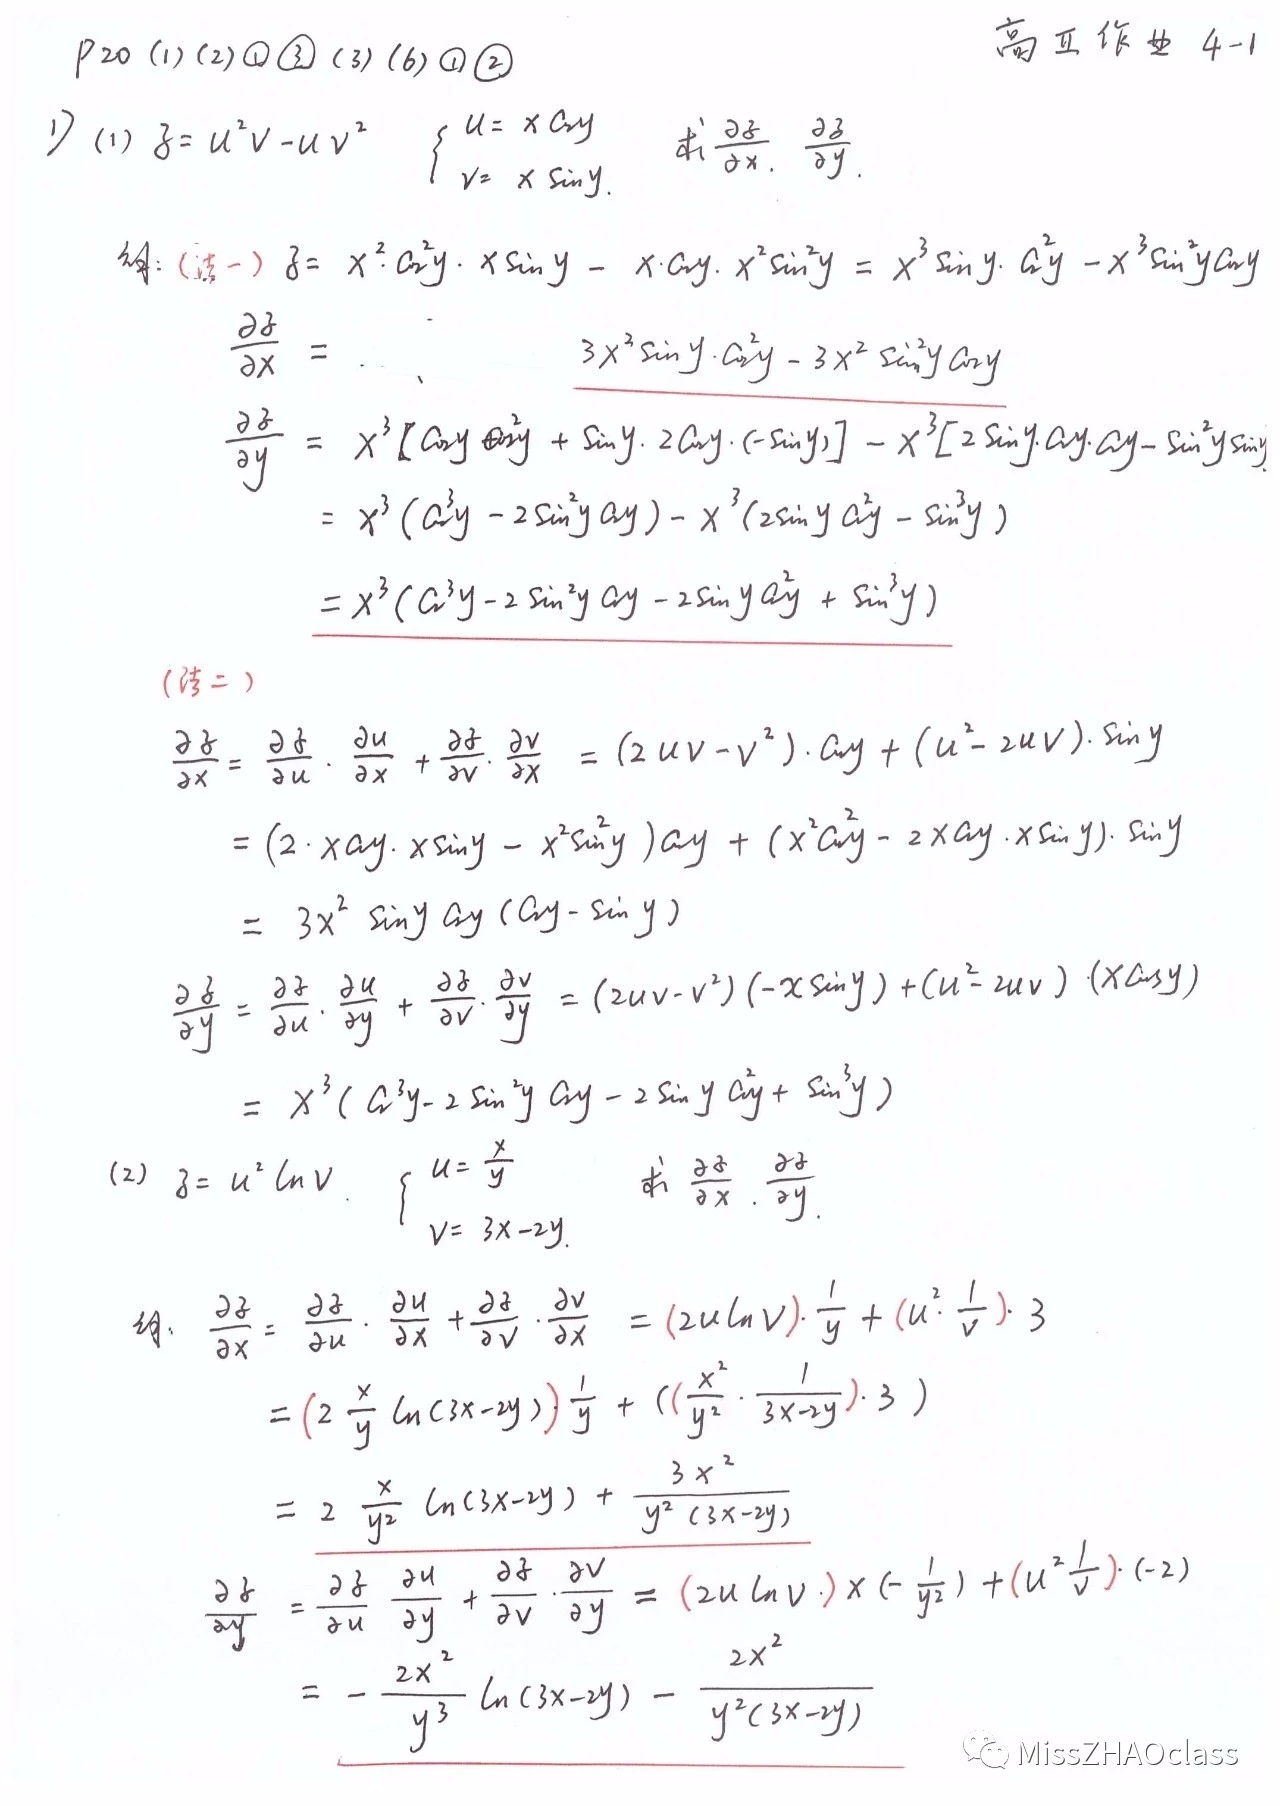 P20 (1) (2) ① ③ (3) (6) ① ②
高工作业 4-1
1) (1) z = u²v - uv² { u = x cosy 求 ∂z/∂x . ∂z/∂y .
v = x siny.
解: (法一) z = x²·cos²y · x siny - x·cosy · x² sin²y = x³ siny · cos²y - x³ sin²y cosy
∂z/∂x = 3x² siny · cos²y - 3x² sin²y cosy
∂z/∂y = x³ [cosy cos²y + siny · 2cosy · (-siny)] - x³ [2siny · cosy · cosy - sin²y siny
= x³ (cos³y - 2sin²y cosy) - x³ (2siny cos²y - sin³y)
= x³ (cos³y - 2sin²y cosy - 2siny cos²y + sin³y)
(法二)
∂z/∂x = ∂z/∂u · ∂u/∂x + ∂z/∂v · ∂v/∂x = (2uv - v²) · cosy + (u² - 2uv) · siny
= (2 · x cosy · x siny - x² sin²y) cosy + (x² cos²y - 2x cosy · x siny) · siny
= 3x² siny cosy (cosy - siny)
∂z/∂y = ∂z/∂u · ∂u/∂y + ∂z/∂v · ∂v/∂y = (2uv - v²) (-x siny) + (u² - 2uv) · (x cosy)
= x³ (cos³y - 2sin²y cosy - 2siny cos²y + sin³y)
(2) z = u² ln v . { u = x/y 求 ∂z/∂x . ∂z/∂y .
v = 3x-2y.
解: ∂z/∂x = ∂z/∂u · ∂u/∂x + ∂z/∂v · ∂v/∂x = (2u ln v) · 1/y + (u² · 1/v) · 3
= (2 x/y ln(3x-2y)) · 1/y + ((x²/y² · 1/(3x-2y)) · 3 )
= 2 x/y² ln(3x-2y) + 3x²/(y² (3x-2y))
∂z/∂y = ∂z/∂u ∂u/∂y + ∂z/∂v · ∂v/∂y = (2u ln v ·) × (- 1/y²) + (u² 1/v) · (-2)
= - 2x²/y³ ln(3x-2y) - 2x²/(y²(3x-2y))
MissZHAOclass